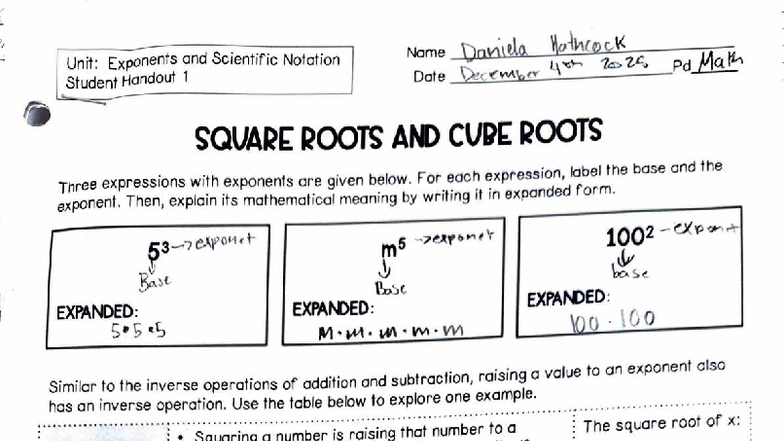 Unit: Exponents and Scientific Notation
Student Handout 1
Name Daniela Hathcock
Date December 4th 2025 Pd Math
SQUARE ROOTS AND CUBE ROOTS
Three expressions with exponents are given below. For each expression, label the base and the
exponent. Then, explain its mathematical meaning by writing it in expanded form.
5³ -> exponet
Base
EXPANDED:
5•5•5
m⁵ -> exponet
Base
EXPANDED:
m•m•m•m•m
100² - exponent
base
EXPANDED:
100 • 100
Similar to the inverse operations of addition and subtraction, raising a value to an exponent also
has an inverse operation. Use the table below to explore one example.
• Squaring a number is raising that number to a
The square root of x: